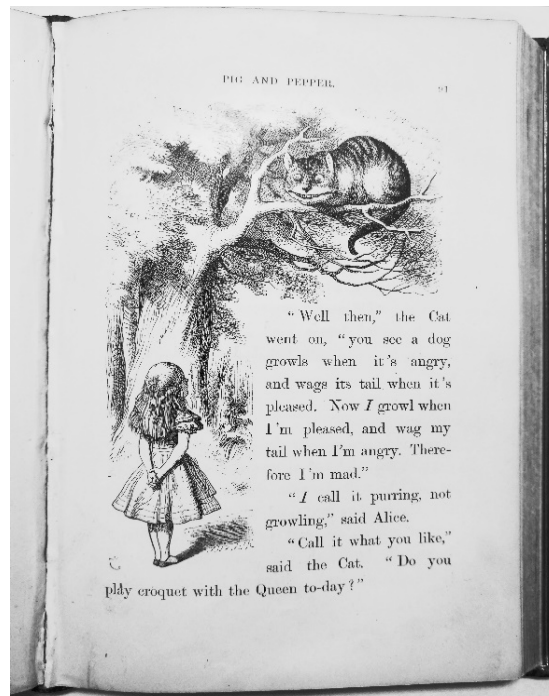 PIG AND PEPPER.
91
“Well then,” the Cat
went on, “you see a dog
growls when it’s angry,
and wags its tail when it’s
pleased. Now I growl when
I’m pleased, and wag my
tail when I’m angry. There-
fore I’m mad.”
“I call it purring, not
growling,” said Alice.
“Call it what you like,”
said the Cat. “Do you
play croquet with the Queen to-day?”